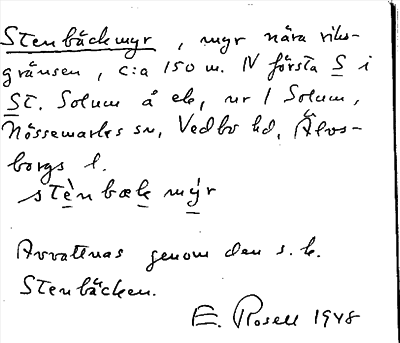 Stenbäckmyr, myr nära riks-
gränsen, c:a 150 m. NV första S i
St. Solum å ek, nr 1 Solum,
Nössemarks sn, Vedbo hd, Älvs-
borgs l.
stè̱nbæḵ mý̱r
Avvattnas genom den s. k.
Stenbäcken.
E. Rosell 1948